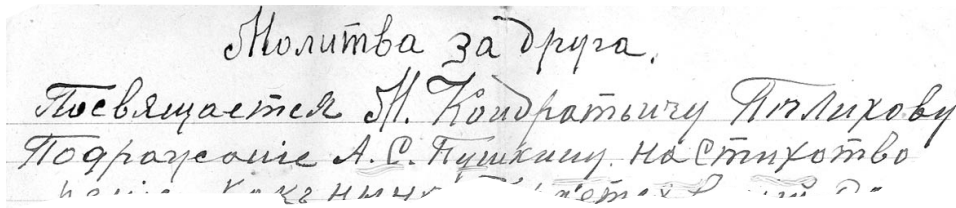 Молитва за друга.
Посвящается М. Кондратьичу Пѣлихову
Подражаніе А. С. Пушкину. на стихотво
рение Какъ нынѣ